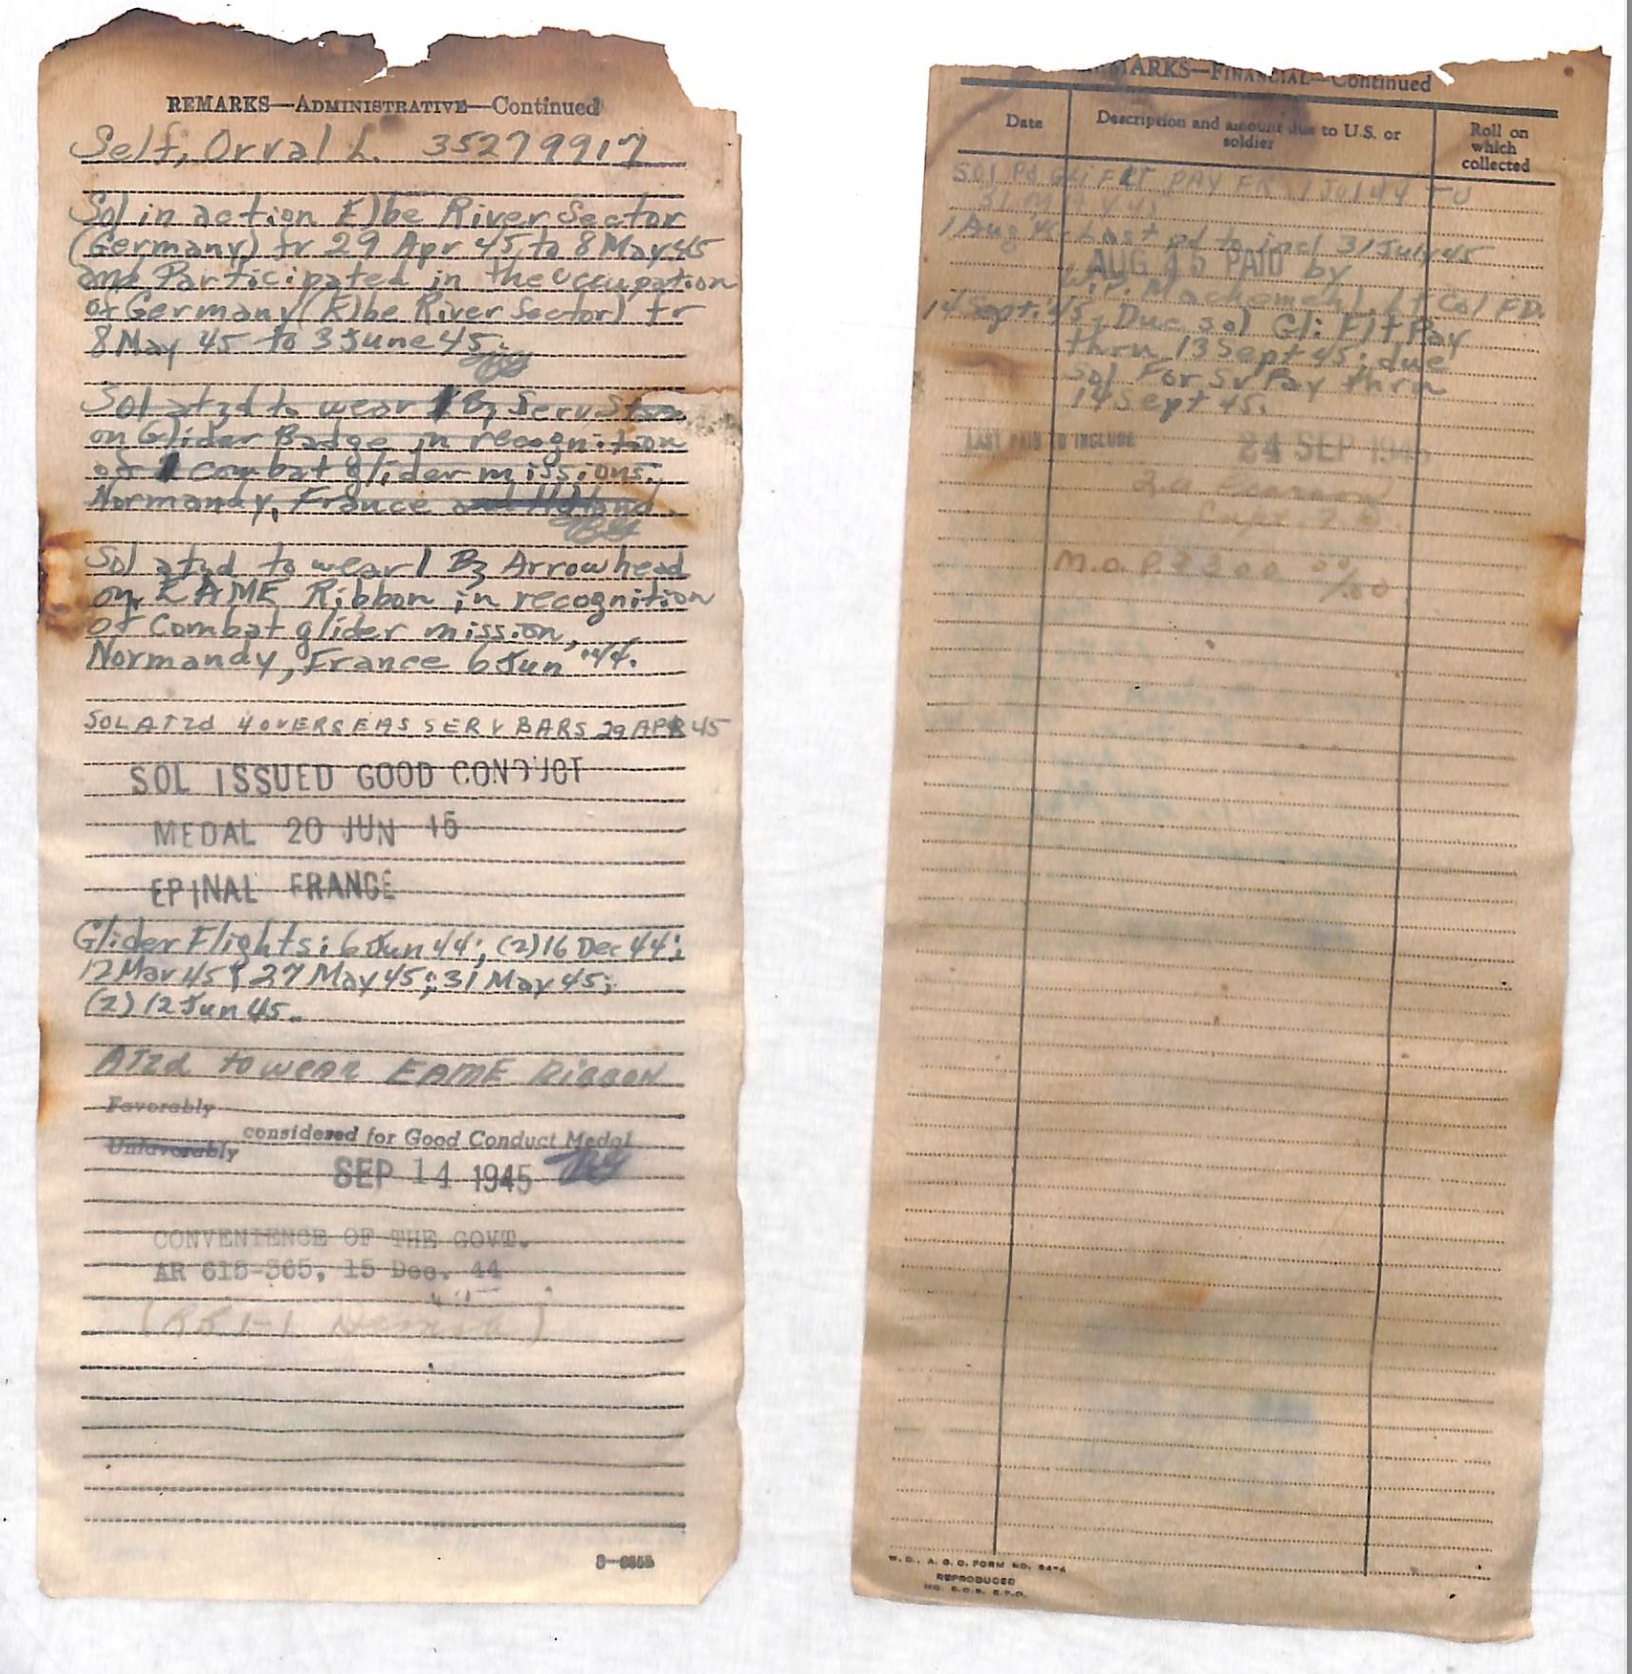 REMARKS—ADMINISTRATIVE—Continued
Self, Orval L. 35279917
Sol in action Elbe River Sector
(Germany) fr 29 Apr 45 to 8 May 45
and Participated in the occupation
of Germany (Elbe River Sector) fr
8 May 45 to 3 June 45.
Sol atzd to wear 1 Bz Serv Star
on Glider Badge in recognition
of 1 combat glider missions,
Normandy, France and Holland.
Sol atzd to wear 1 Bz Arrowhead
on EAME Ribbon in recognition
of Combat glider mission,
Normandy, France 6 Jun '44.
SOL ATZd 4 OVERSEAS SERV BARS 29 APR 45
SOL ISSUED GOOD CONDUCT
MEDAL 20 JUN 45
EPINAL FRANCE
Glider Flights: 6 Jun 44; (2) 16 Dec 44;
12 Mar 45; 27 May 45; 31 May 45;
(2) 12 Jun 45.
ATZd to wear EAME Ribbon
Favorably
considered for Good Conduct Medal
Unfavorably
SEP 14 1945
CONVENIENCE OF THE GOVT.
AR 615-365, 15 Dec. 44
(RR 1-1
REMARKS—FINANCIAL—Continued
Date
Description and amount due to U.S. or soldier
Roll on which collected
Sol Pd Gli FLT PAY FR 1 Jul 44 TO
31 MAY 45
1 Aug 45 Last pd to incl 31 July 45
AUG 45 PAID by
W.P. Machemehl, Lt Col FD.
14 Sept. '45. Due sol Gli Flt Pay
thru 13 Sept 45; due
sol For Sv Pay thru
14 Sept 45.
LAST PAID TO INCLUDE 24 SEP 1945
Capt. F.D.
M.O.P. $300 00/100
W. D., A. G. O. FORM NO. 24-A
REPRODUCED
HQ. S.O.S. E.T.O.